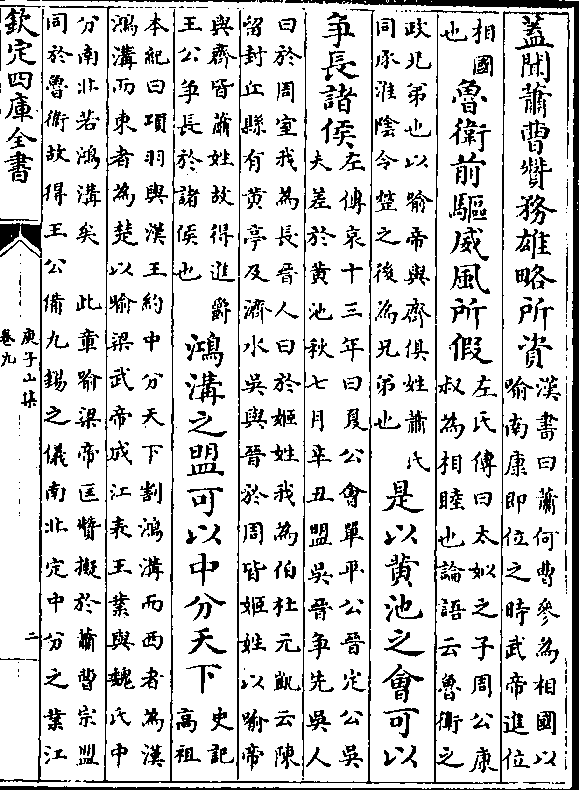 蓋聞蕭曹贊務雄略所資
漢書曰蕭何曹參為相國以
喻南康即位之時武帝進位
相國
也
魯衛前驅威風所假
左氏傳曰太姒之子周公康
叔為相睦也論語云魯衛之
政兄弟也以喻帝與齊俱姓蕭氏
同承淮陰令整之後為兄弟也
是以黃池之會可以
爭長諸侯
左傳哀十三年曰夏公會單平公晉定公吳
夫差於黃池秋七月辛丑盟吳晉爭先吳人
曰於周室我為長晉人曰於姬姓我為伯杜元凱云陳
留封丘縣有黃亭及濟水吳與晉於周皆姬姓以喻帝
與齊皆蕭姓故得進爵
王公爭長於諸侯也
鴻溝之盟可以中分天下
史記
高祖
本紀曰項羽與漢王約中分天下割鴻溝而西者為漢
鴻溝而東者為楚以喻梁武帝成江表王業與魏氏中
分南北若鴻溝矣 此章喻梁帝匡贊擬於蕭曹宗盟
同於魯衛故得王公備九錫之儀南北定中分之業江
欽定四庫全書
庾子山集
卷九
二